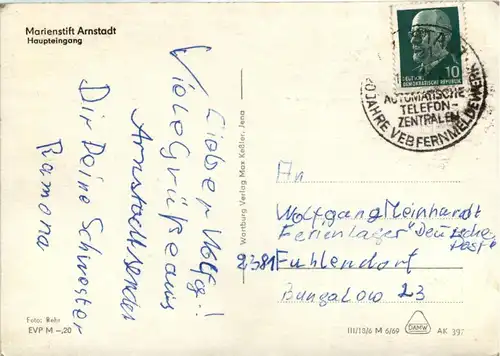 Marienstift Arnstadt
Haupteingang
Lieber Wolfg.!
Viele Grüße aus
Arnstadt sendet
Dir Deine Schwester
Ramona
Foto: Behr
EVP M –,20
Wartburg Verlag Max Keßler, Jena
10
DEUTSCHE
DEMOKRATISCHE REPUBLIK
AUTOMATISCHE
TELEFON-
ZENTRALEN
20 JAHRE VEB FERNMELDEWERK
An
Wolfgang Meinhardt
Ferienlager "Deutsche
Post"
2381 Fuhlendorf
Bungalow 23
III/18/6 M 6/69
DAMW
AK 397